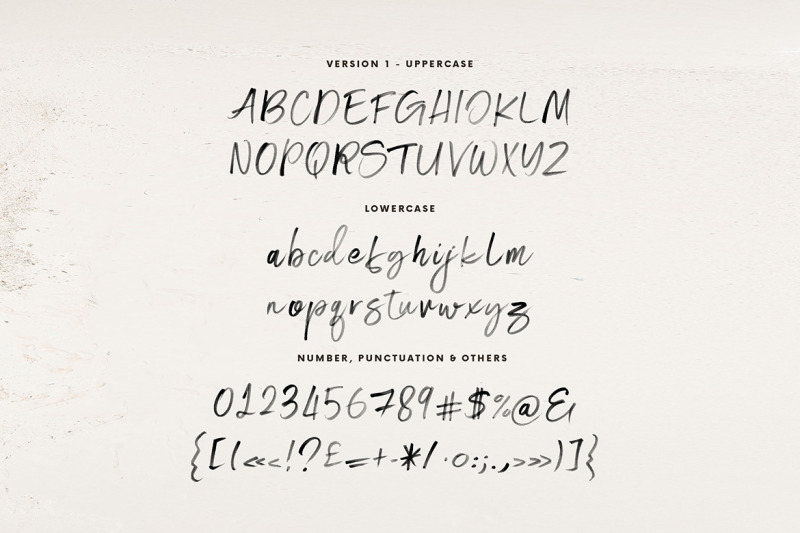 VERSION 1 - UPPERCASE
ABCDEFGHIJKLM
NOPQRSTUVWXYZ
LOWERCASE
abcdefghijklm
nopqrstuvwxyz
NUMBER, PUNCTUATION & OTHERS
0123456789#$%@&
{[(«<!?£=+-*/·o:;.,>»)]}